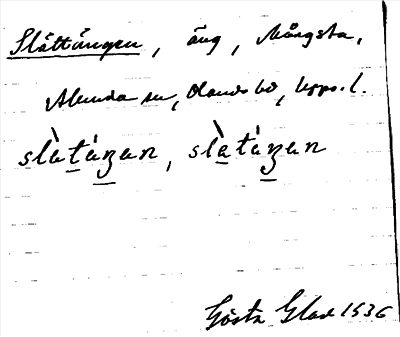 Slåttängen, äng, Mångsta,
Alunda sn, Olands hd, Upps. l.
slàtáŋan, slàtáŋan
Gösta Glad 1936